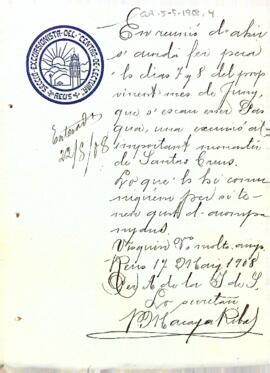 CAR-3-5-1908-4
SECCIÓ EXCURSIONISTA DEL CENTRO DE LECTURA
REUS
En reunió d'ahir
s'acordá fer pera
ls dias 7 y 8 del prop
vinent mes de Juny,
que s'escau esser Pas
qua, una excursió al
important monastir
de Santas Creus.
Lo que ls hi comu
niquem per si te
nen gust d'acompa
nyarnos.
Visquin Vs molts anys
Reus 17 Maig 1908
Per A. de la J. de S.
Lo secretari
Macaya Ribas
Enterados
22/5/08